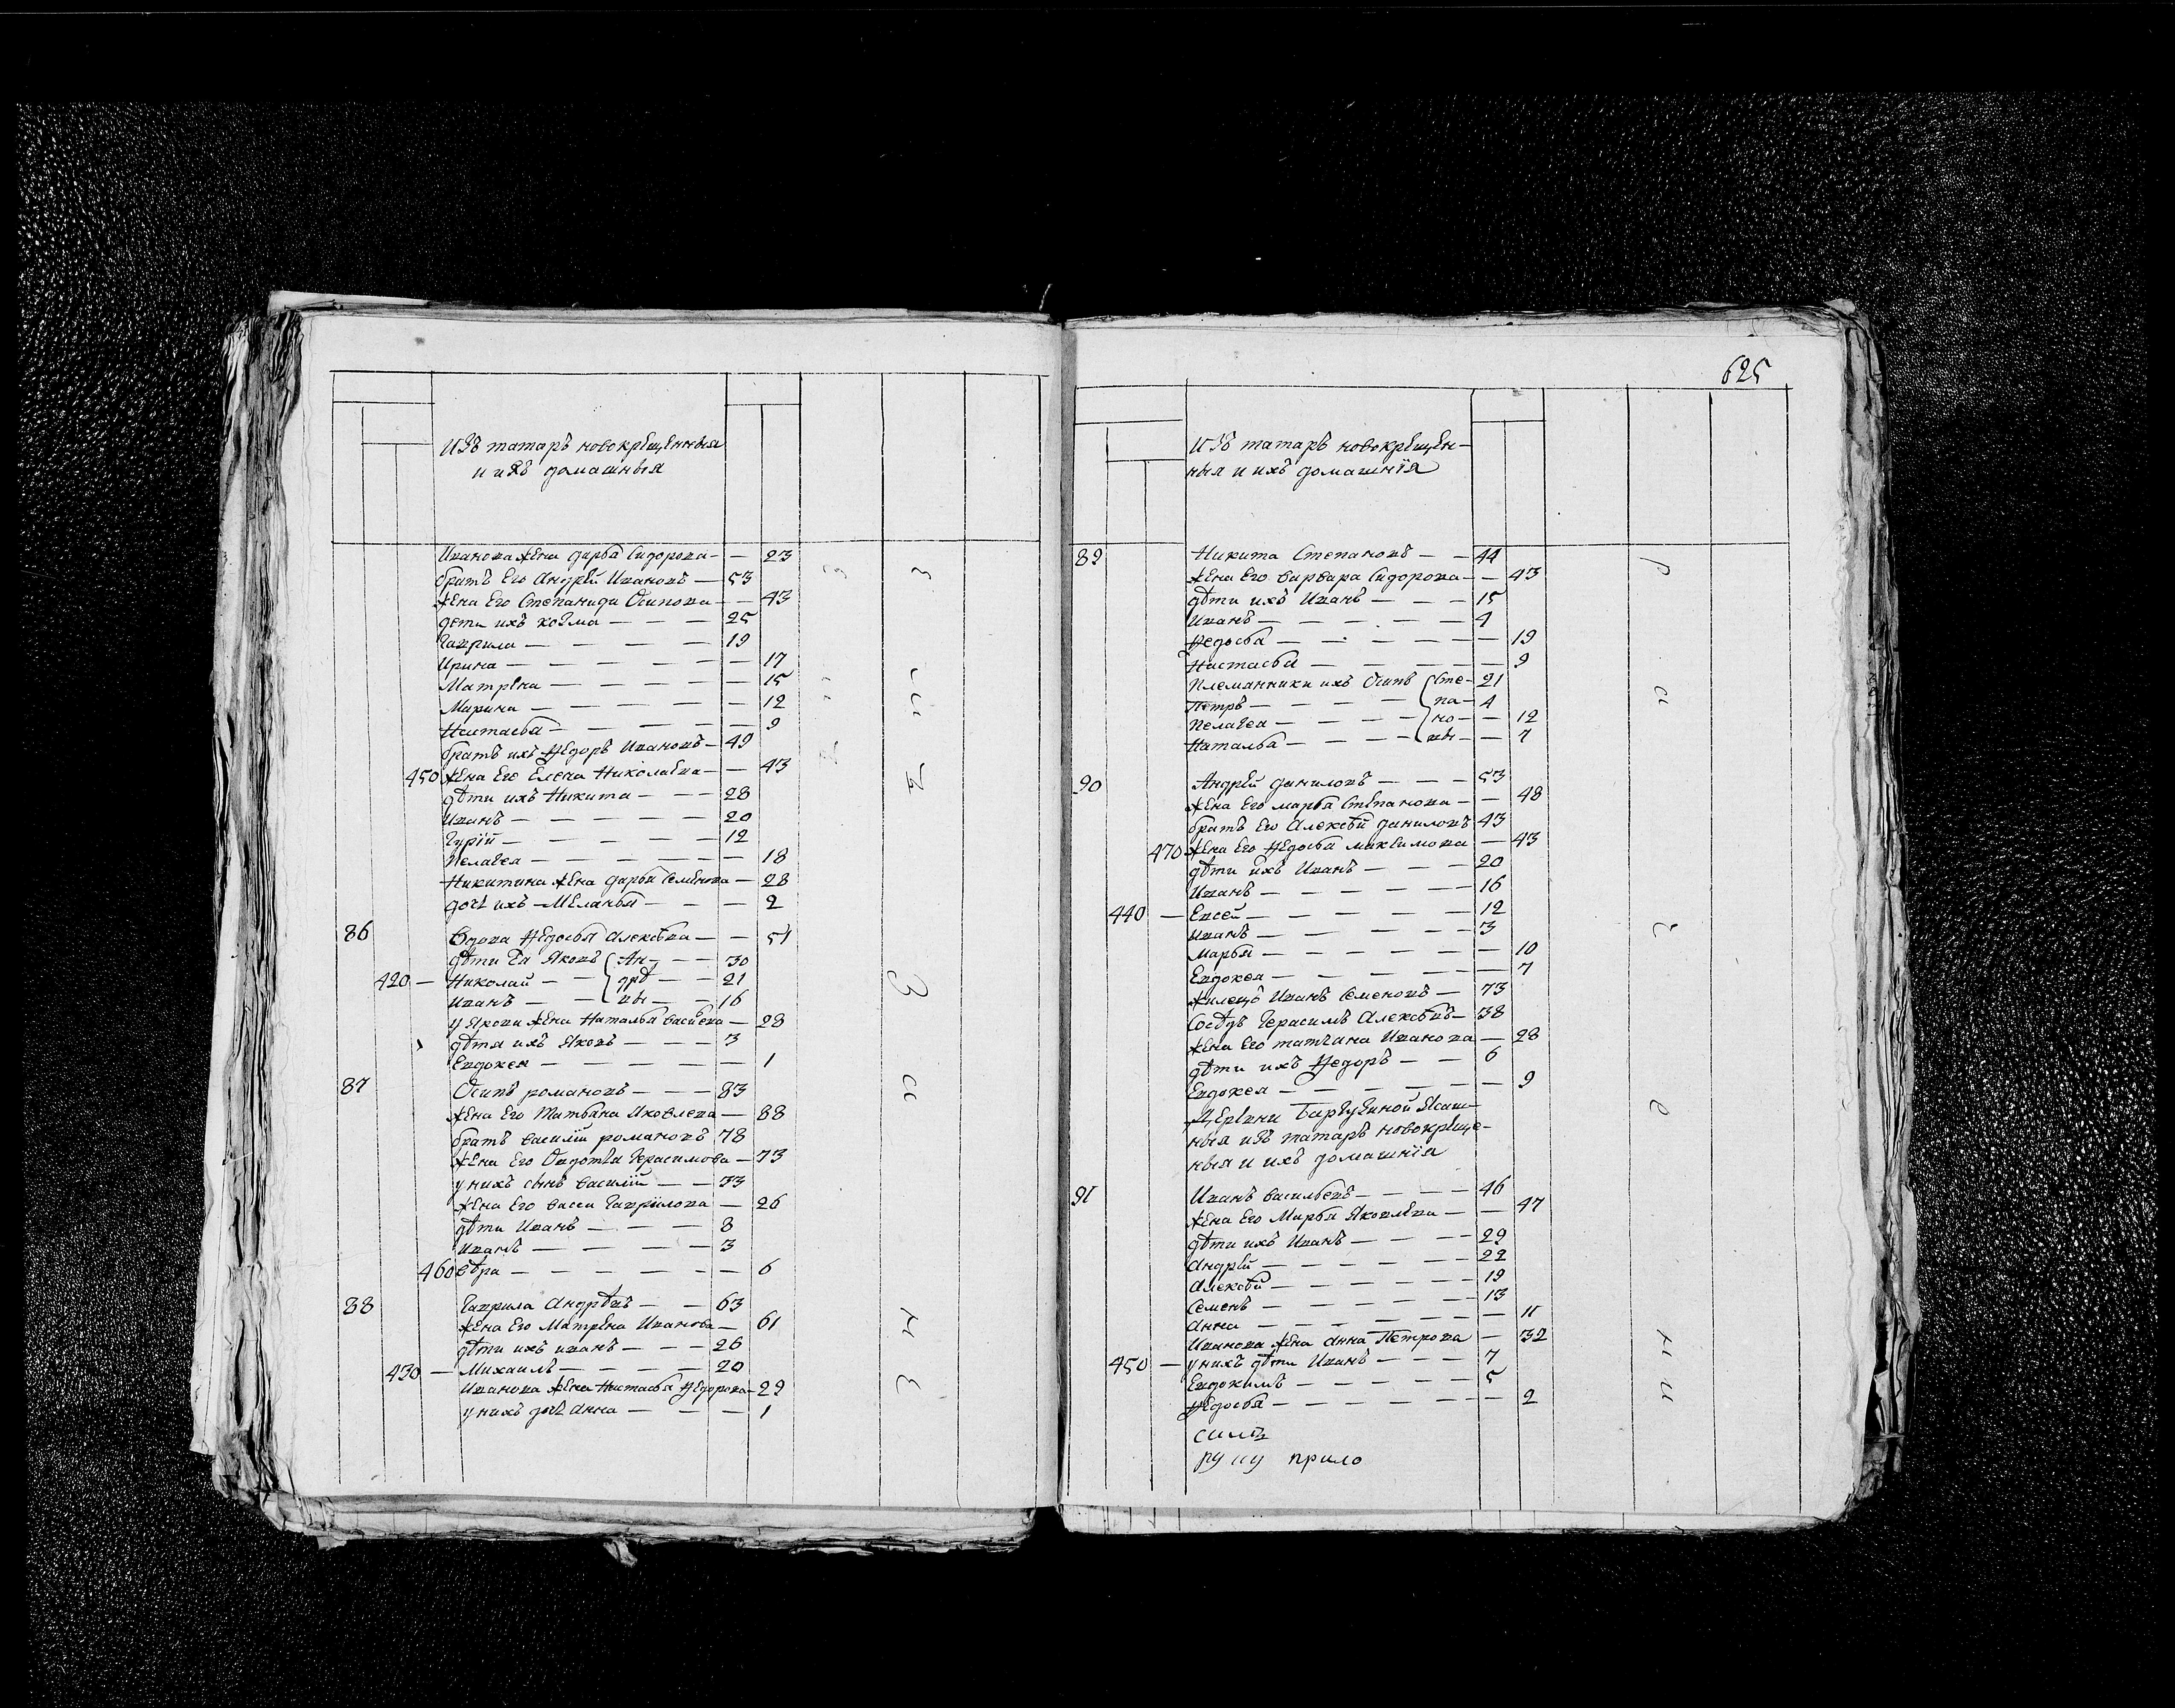 625
Изъ татаръ новокрещенныя
и ихъ домашныя
Иванова жена дарья Сидорова — 23
братъ Его Андрей Ивановъ — 53
жена Его Степанида Осипова — 43
дети ихъ козма — 25
Гаврила — 19
Ирина — 17
Матрена — 15
Марина — 12
Настасья — 9
братъ ихъ Ѳедоръ Ивановъ — 49
450 жена Его Елена Николаева — 43
дѣти ихъ Никита — 28
Иванъ — 20
Гурій — 12
Пелагея — 18
Никитина жена дарья Семенова — 28
дочь ихъ Меланья — 2
86 Вдова Ѳедосья Алексѣева — 51
дѣти Ея Яковъ Ан- — 30
420 — Николай — дрѣ — 21
Иванъ — вы — 16
у Якова жена Наталья васильева — 28
дѣтя ихъ Яковъ — 3
Евдокея — 1
87 Осипъ романовъ — 83
жена Его Татьяна Яковлева — 88
братъ василій романовъ 78
жена Его Овдотья Герасимова — 73
у нихъ сынъ василій — 33
жена Его васса Гаврилова — 26
дѣти Иванъ — 8
Иванъ — 3
460 вѣра — 6
88 Гаврила Андрѣевъ — 63
жена Его Матрена Иванова — 61
дѣти ихъ иванъ — 26
430 — Михаилъ — 20
Иванова жена Настасья Ѳедорова — 29
у нихъ дочь анна — 1
Изъ татаръ новокрещен-
ныя и ихъ домашнія
89 Никита Степановъ — 44
жена Его варвара Сидорова — 43
дѣти ихъ Иванъ — 15
Иванъ — 4
Ѳедосья — 19
Настасья — 9
Племянники ихъ Осипъ Сте- 21
Петръ — па- 4
Пелагея — но- 12
Наталья — вы — 7
90 Андрей даниловъ — 53
жена Его марья Степанова — 48
братъ Его Алексѣй даниловъ 43
470 жена Его Ѳедосья максимова — 43
дѣти ихъ Иванъ — 20
Иванъ — 16
440 — Евсей — 12
иванъ — 3
Марья — 10
Евдокея — 7
жилецъ Иванъ Семеновъ — 73
Сосѣдъ Герасимъ Алексѣевъ — 38
жена Его татьяна Иванова — 28
дѣти ихъ Ѳедоръ — 6
Евдокея — 9
Деревни Ясаш-
ныя изъ татаръ новокреще-
ныя и ихъ домашнія
91 Иванъ васильевъ — 46
жена Его Марья Яковлева — 47
дѣти ихъ Иванъ — 29
андрей — 22
алексѣй — 19
Семенъ — 13
анна — 11
Иванова жена анна Петрова — 32
450 — у нихъ дѣти Иванъ — 7
Евдокимъ — 5
Ѳедосья — 2
руку прило